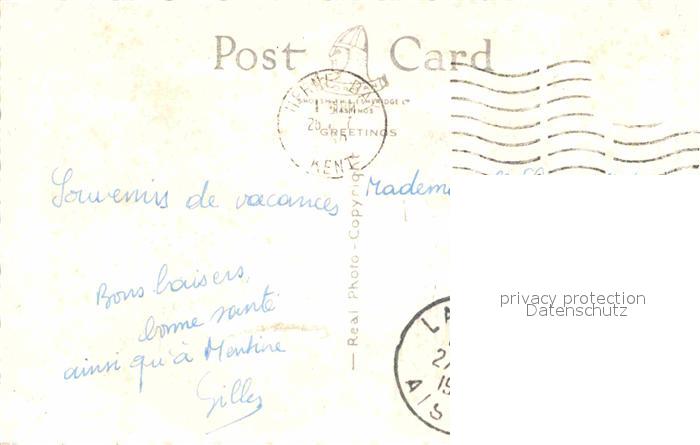 Post Card
HERNE BAY
KENT
SHOESMITH & ETHERIDGE LTD
HASTINGS
GREETINGS
Souvenirs de vacances
Bons baisers,
bonne santé
ainsi qu'à Mentine
Gilles
Real Photo - Copyright
privacy protection
Datenschutz
LA
AIS